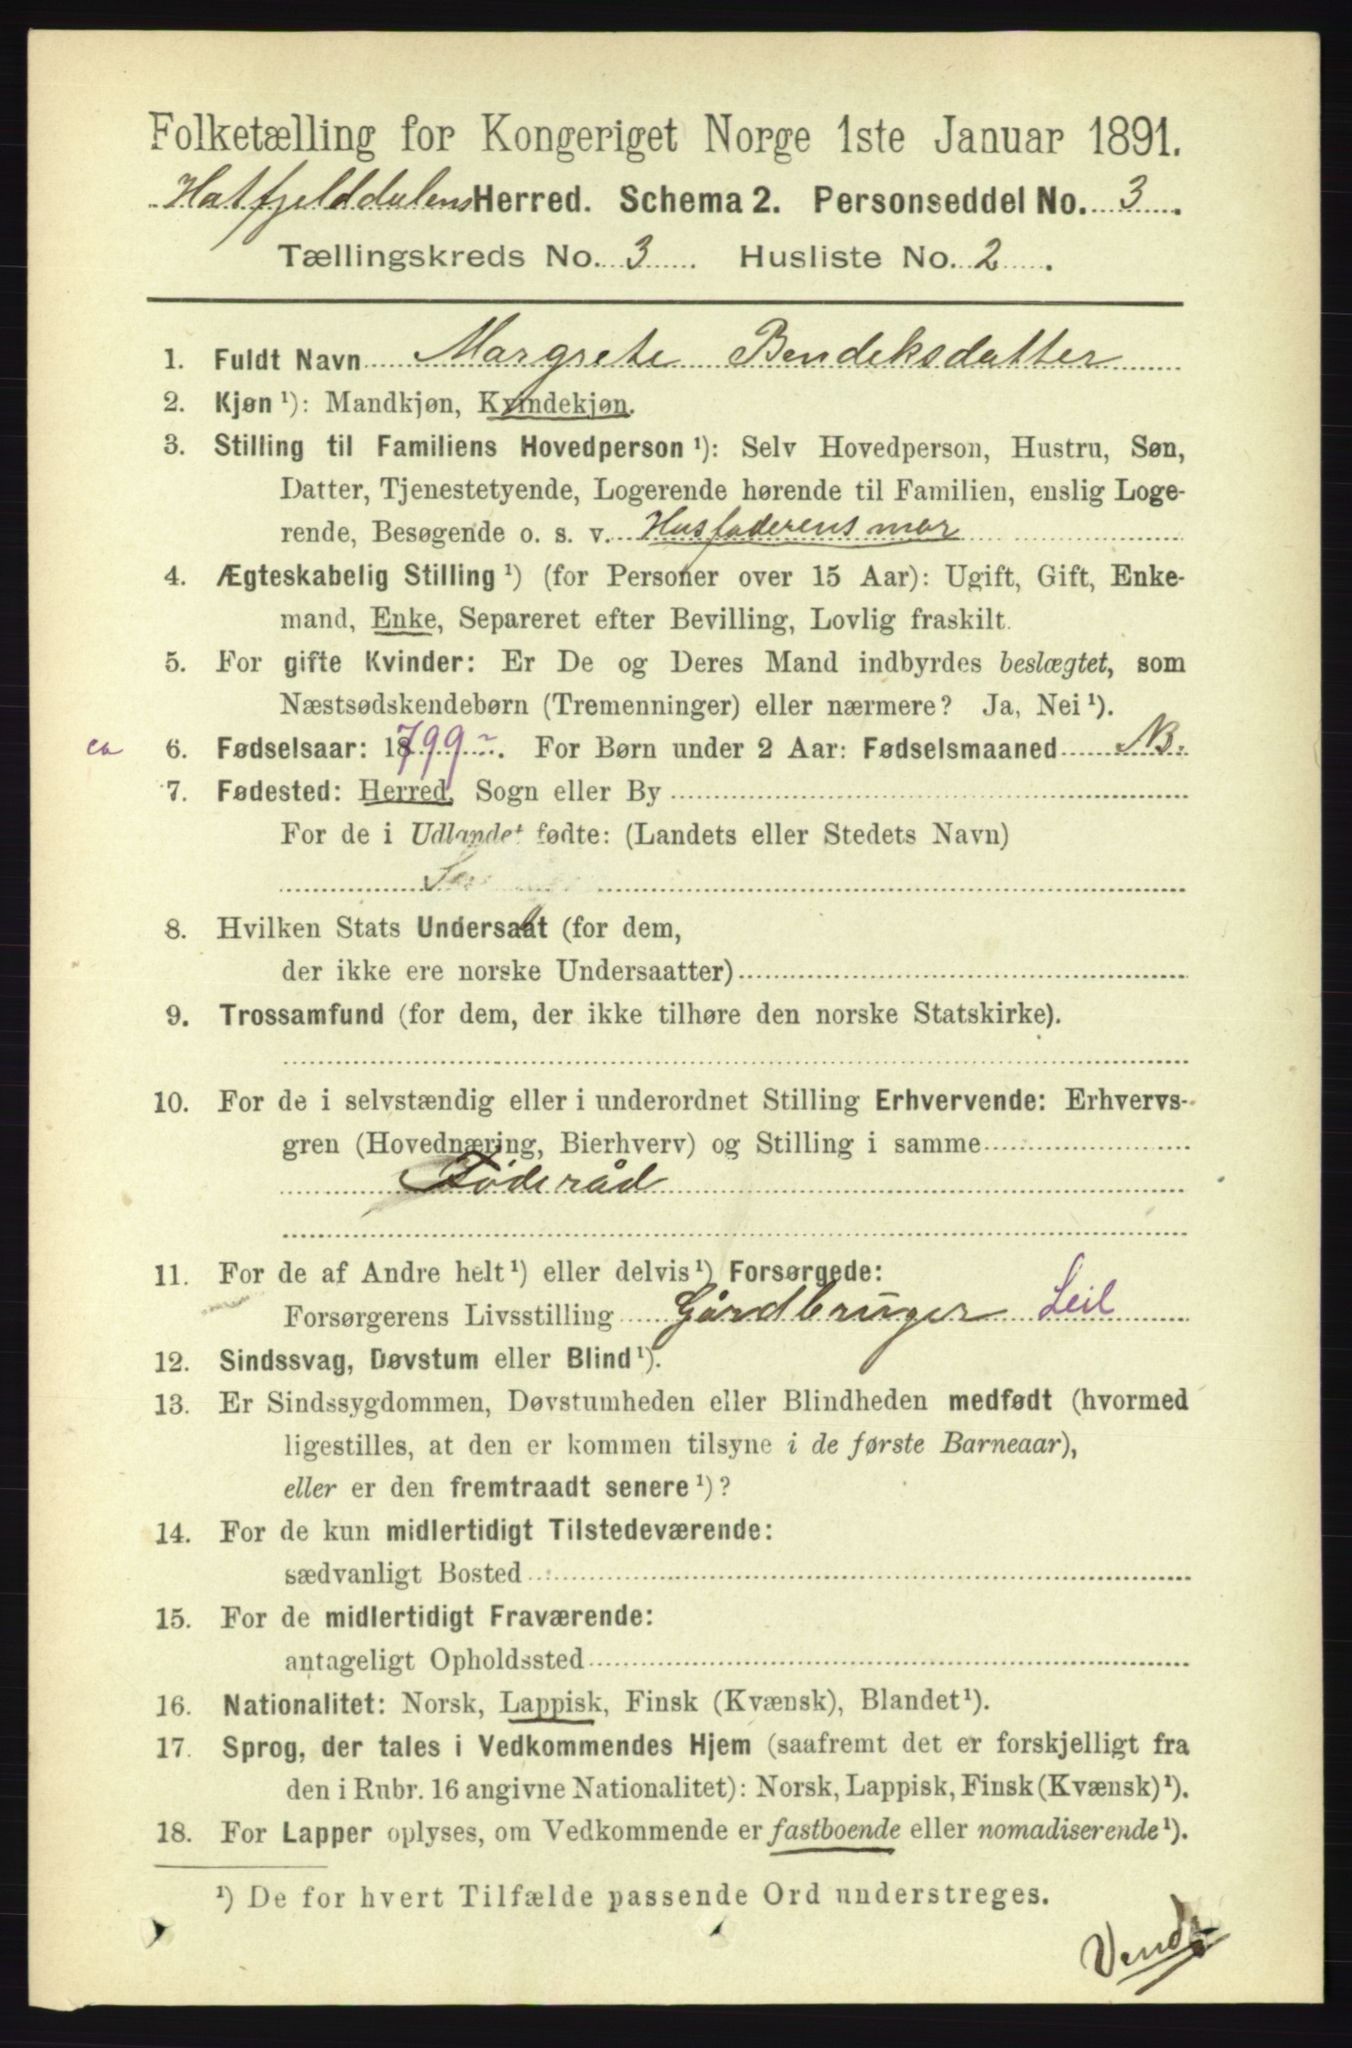 Folketælling for Kongeriget Norge 1ste Januar 1891.
Hatfjelddalens Herred. Schema 2. Personseddel No. 3.
Tællingskreds No. 3 Husliste No. 2.
1. Fuldt Navn Margrete Bendeksdatter
2. Kjøn ¹): Mandkjøn, Kvindekjøn.
3. Stilling til Familiens Hovedperson ¹): Selv Hovedperson, Hustru, Søn,
Datter, Tjenestetyende, Logerende hørende til Familien, enslig Loge-
rende, Besøgende o. s. v. Husfaderens mor
4. Ægteskabelig Stilling ¹) (for Personer over 15 Aar): Ugift, Gift, Enke-
mand, Enke, Separeret efter Bevilling, Lovlig fraskilt.
5. For gifte Kvinder: Er De og Deres Mand indbyrdes beslægtet, som
Næstsødskendebørn (Tremenninger) eller nærmere? Ja, Nei ¹).
ca 6. Fødselsaar: 1799. For Børn under 2 Aar: Fødselsmaaned NB.
7. Fødested: Herred, Sogn eller By
For de i Udlandet fødte: (Landets eller Stedets Navn)
8. Hvilken Stats Undersaat (for dem,
der ikke ere norske Undersaatter)
9. Trossamfund (for dem, der ikke tilhøre den norske Statskirke).
10. For de i selvstændig eller i underordnet Stilling Erhvervende: Erhvervs-
gren (Hovednæring, Bierhverv) og Stilling i samme
Föderåd
11. For de af Andre helt ¹) eller delvis ¹) Forsørgede:
Forsørgerens Livsstilling Gårdbruger Leil
12. Sindssvag, Døvstum eller Blind ¹).
13. Er Sindssygdommen, Døvstumheden eller Blindheden medfødt (hvormed
ligestilles, at den er kommen tilsyne i de første Barneaar),
eller er den fremtraadt senere ¹)?
14. For de kun midlertidigt Tilstedeværende:
sædvanligt Bosted
15. For de midlertidigt Fraværende:
antageligt Opholdssted
16. Nationalitet: Norsk, Lappisk, Finsk (Kvænsk), Blandet ¹).
17. Sprog, der tales i Vedkommendes Hjem (saafremt det er forskjelligt fra
den i Rubr. 16 angivne Nationalitet): Norsk, Lappisk, Finsk (Kvænsk) ¹).
18. For Lapper oplyses, om Vedkommende er fastboende eller nomadiserende ¹).
¹) De for hvert Tilfælde passende Ord understreges.
Vend